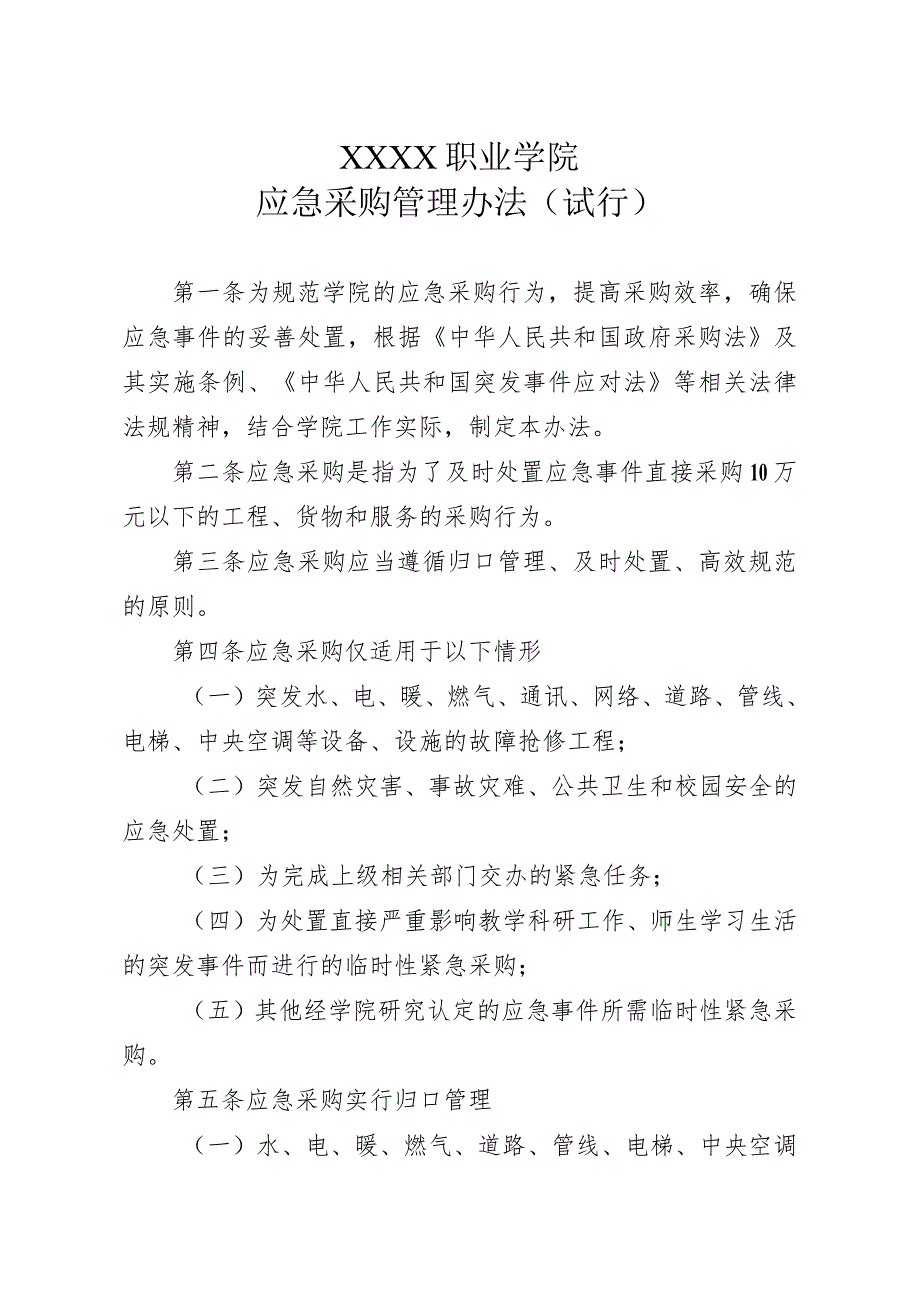 XXXX 职业学院
应急采购管理办法（试行）
第一条为规范学院的应急采购行为，提高采购效率，确保
应急事件的妥善处置，根据《中华人民共和国政府采购法》及
其实施条例、《中华人民共和国突发事件应对法》等相关法律
法规精神，结合学院工作实际，制定本办法。
第二条应急采购是指为了及时处置应急事件直接采购10万
元以下的工程、货物和服务的采购行为。
第三条应急采购应当遵循归口管理、及时处置、高效规范
的原则。
第四条应急采购仅适用于以下情形
（一）突发水、电、暖、燃气、通讯、网络、道路、管线、
电梯、中央空调等设备、设施的故障抢修工程；
（二）突发自然灾害、事故灾难、公共卫生和校园安全的
应急处置；
（三）为完成上级相关部门交办的紧急任务；
（四）为处置直接严重影响教学科研工作、师生学习生活
的突发事件而进行的临时性紧急采购；
（五）其他经学院研究认定的应急事件所需临时性紧急采
购。
第五条应急采购实行归口管理
（一）水、电、暖、燃气、道路、管线、电梯、中央空调